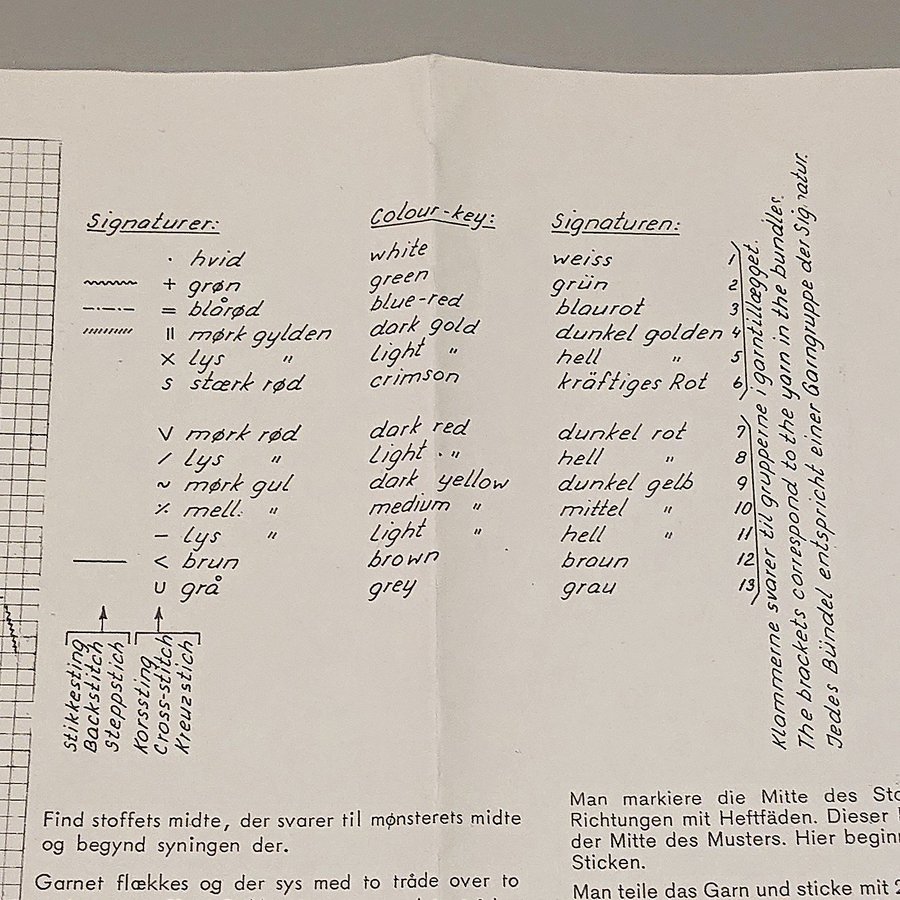 Signaturer: Colour-key: Signaturen:
· hvid white weiss 1
+ grøn green grün 2
= blårød blue-red blaurot 3
॥ mørk gylden dark gold dunkel golden 4
x lys " light " hell " 5
s stærk rød crimson kräftiges Rot 6
v mørk rød dark red dunkel rot 7
/ lys " light " hell " 8
~ mørk gul dark yellow dunkel gelb 9
⁒ mell. " medium " mittel " 10
– lys " light " hell " 11
< brun brown braun 12
u grå grey grau 13
Stikkesting
Backstitch
Steppstich
Korssting
Cross-stitch
Kreuzstich
Klammerne svarer til grupperne i garntillægget.
The brackets correspond to the yarn in the bundles.
Jedes Bündel entspricht einer Garngruppe der Signatur.
Find stoffets midte, der svarer til mønsterets midte
og begynd syningen der.
Garnet flækkes og der sys med to tråde over to
Man markiere die Mitte des
Richtungen mit Heftfäden. Dieser
der Mitte des Musters. Hier
Sticken.
Man teile das Garn und sticke mit